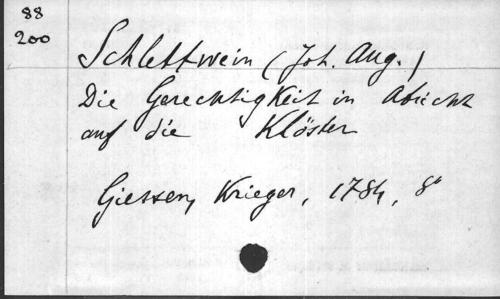 88
200
Schlettwein (Joh. Aug.)
Die Gerechtigkeit in Absicht
auf die Klöster
Giessen, Krieger, 1784, 8°